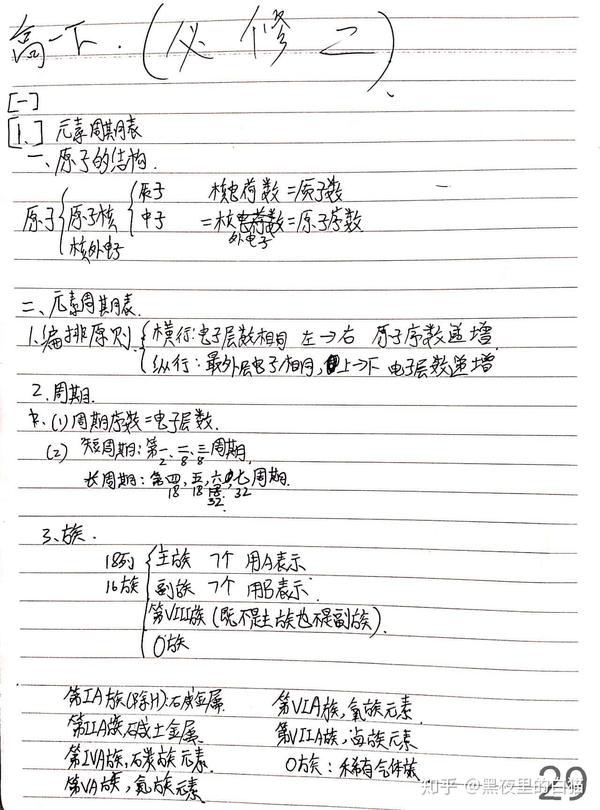 高一下.(必修二)、
[一]
[1.] 元素周期表
一、原子的结构.
原子{原子核{质子 核电荷数=质子数
中子 =核外电子数=原子序数
核外电子
二、元素周期表.
1.编排原则{横行:电子层数相同 左→右 原子序数递增.
纵行:最外层电子相同,上→下 电子层数递增
2.周期.
*.(1)周期序数=电子层数.
(2) 短周期:第一、二、三周期.
2 8 8
长周期:第四,五,六,七周期.
18 18 32 32
3、族.
18列{主族 7个 用A表示
16族 副族 7个 用B表示.
第VIII族(既不是主族也不是副族).
0族
第IA族(除H):碱金属. 第VIA族,氧族元素.
第IIA族碱土金属. 第VIIA族,卤族元素
第IVA族,碳族元素. 0族:稀有气体
第VA族,氮族元素
知乎 @黑夜里的白猫
29